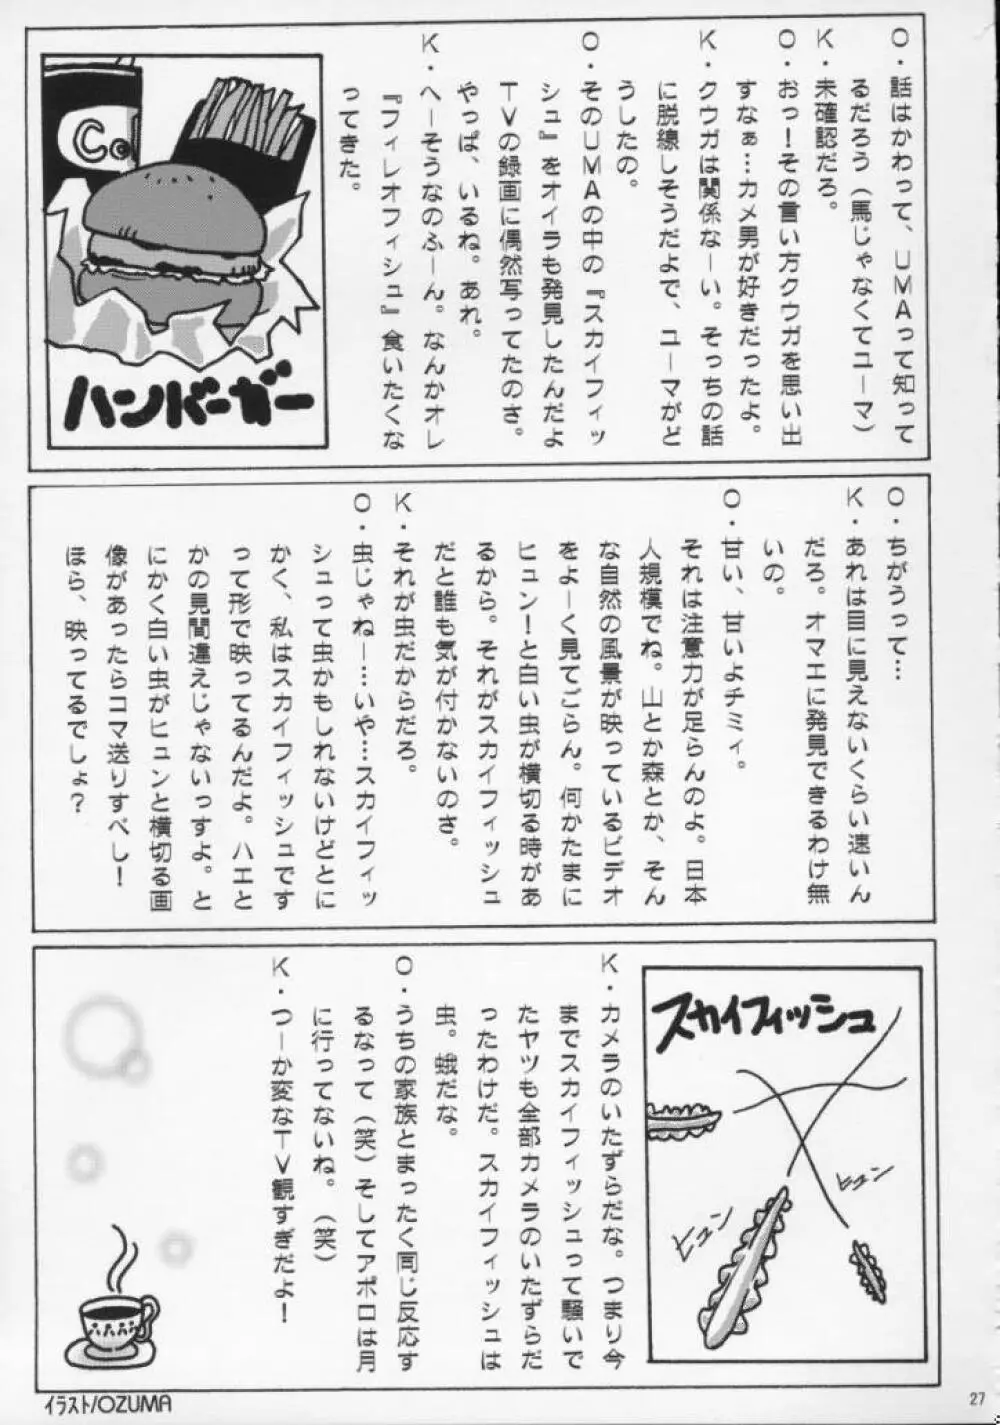 O・話はかわって、UMAって知って
るだろう（馬じゃなくてユーマ）
K・未確認だろ。
O・おっ！その言い方クウガを思い出
すなぁ…カメ男が好きだったよ。
K・クウガは関係なーい。そっちの話
に脱線しそうだよで、ユーマがど
うしたの。
O・そのUMAの中の『スカイフィッ
シュ』をオイラも発見したんだよ
TVの録画に偶然写ってたのさ。
やっぱ、いるね。あれ。
K・へーそうなのふーん。なんかオレ
『フィレオフィシュ』食いたくな
ってきた。
Co
ハンバーガー
O・ちがうって…
K・あれは目に見えないくらい速いん
だろ。オマエに発見できるわけ無
いの。
O・甘い、甘いよチミィ。
それは注意力が足らんのよ。日本
人規模でね。山とか森とか、そん
な自然の風景が映っているビデオ
をよーく見てごらん。何かたまに
ヒュン！と白い虫が横切る時があ
るから。それがスカイフィッシュ
だと誰も気が付かないのさ。
K・それが虫だからだろ。
O・虫じゃねー…いや…スカイフィッ
シュって虫かもしれないけどとに
かく、私はスカイフィッシュです
って形で映ってるんだよ。ハエと
かの見間違えじゃないっすよ。と
にかく白い虫がヒュンと横切る画
像があったらコマ送りすべし！
ほら、映ってるでしょ？
スカイフィッシュ
ヒュン
ヒュン
K・カメラのいたずらだな。つまり今
までスカイフィッシュって騒いで
たヤツも全部カメラのいたずらだ
ったわけだ。スカイフィッシュは
虫。蛾だな。
O・うちの家族とまったく同じ反応す
るなって（笑）そしてアポロは月
に行ってないね。（笑）
K・つーか変なTV観すぎだよ！
イラスト/OZUMA
27